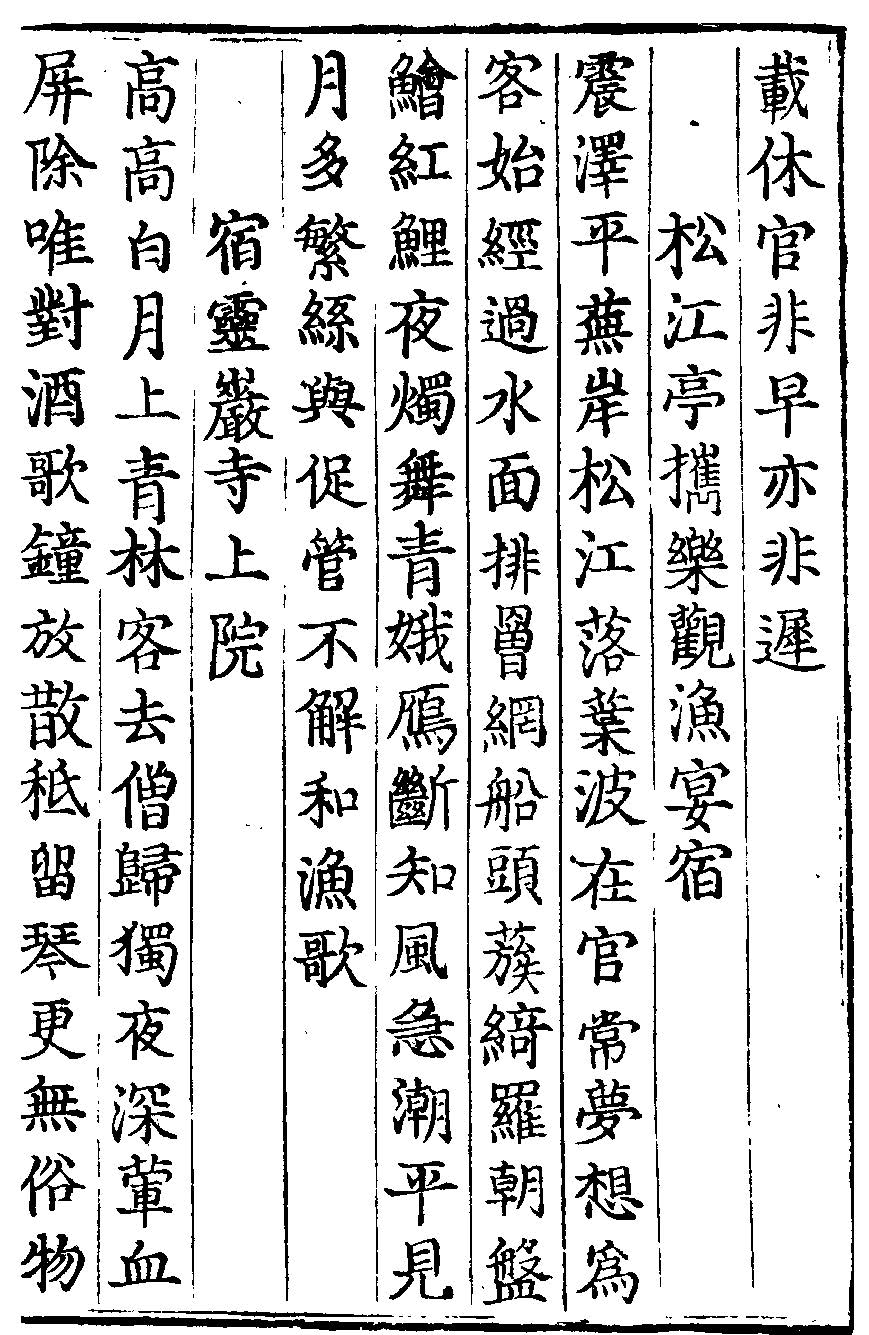 載休官非早亦非遲
松江亭攜樂觀漁宴宿
震澤平蕪岸松江落葉波在官常夢想爲
客始經過水面排罾網船頭蔟綺羅朝盤
鱠紅鯉夜燭舞青娥鴈斷知風急潮平見
月多繁絲與促管不解和漁歌
宿靈巖寺上院
高高白月上青林客去僧歸獨夜深葷血
屏除唯對酒歌鐘放散秪留琴更無俗物